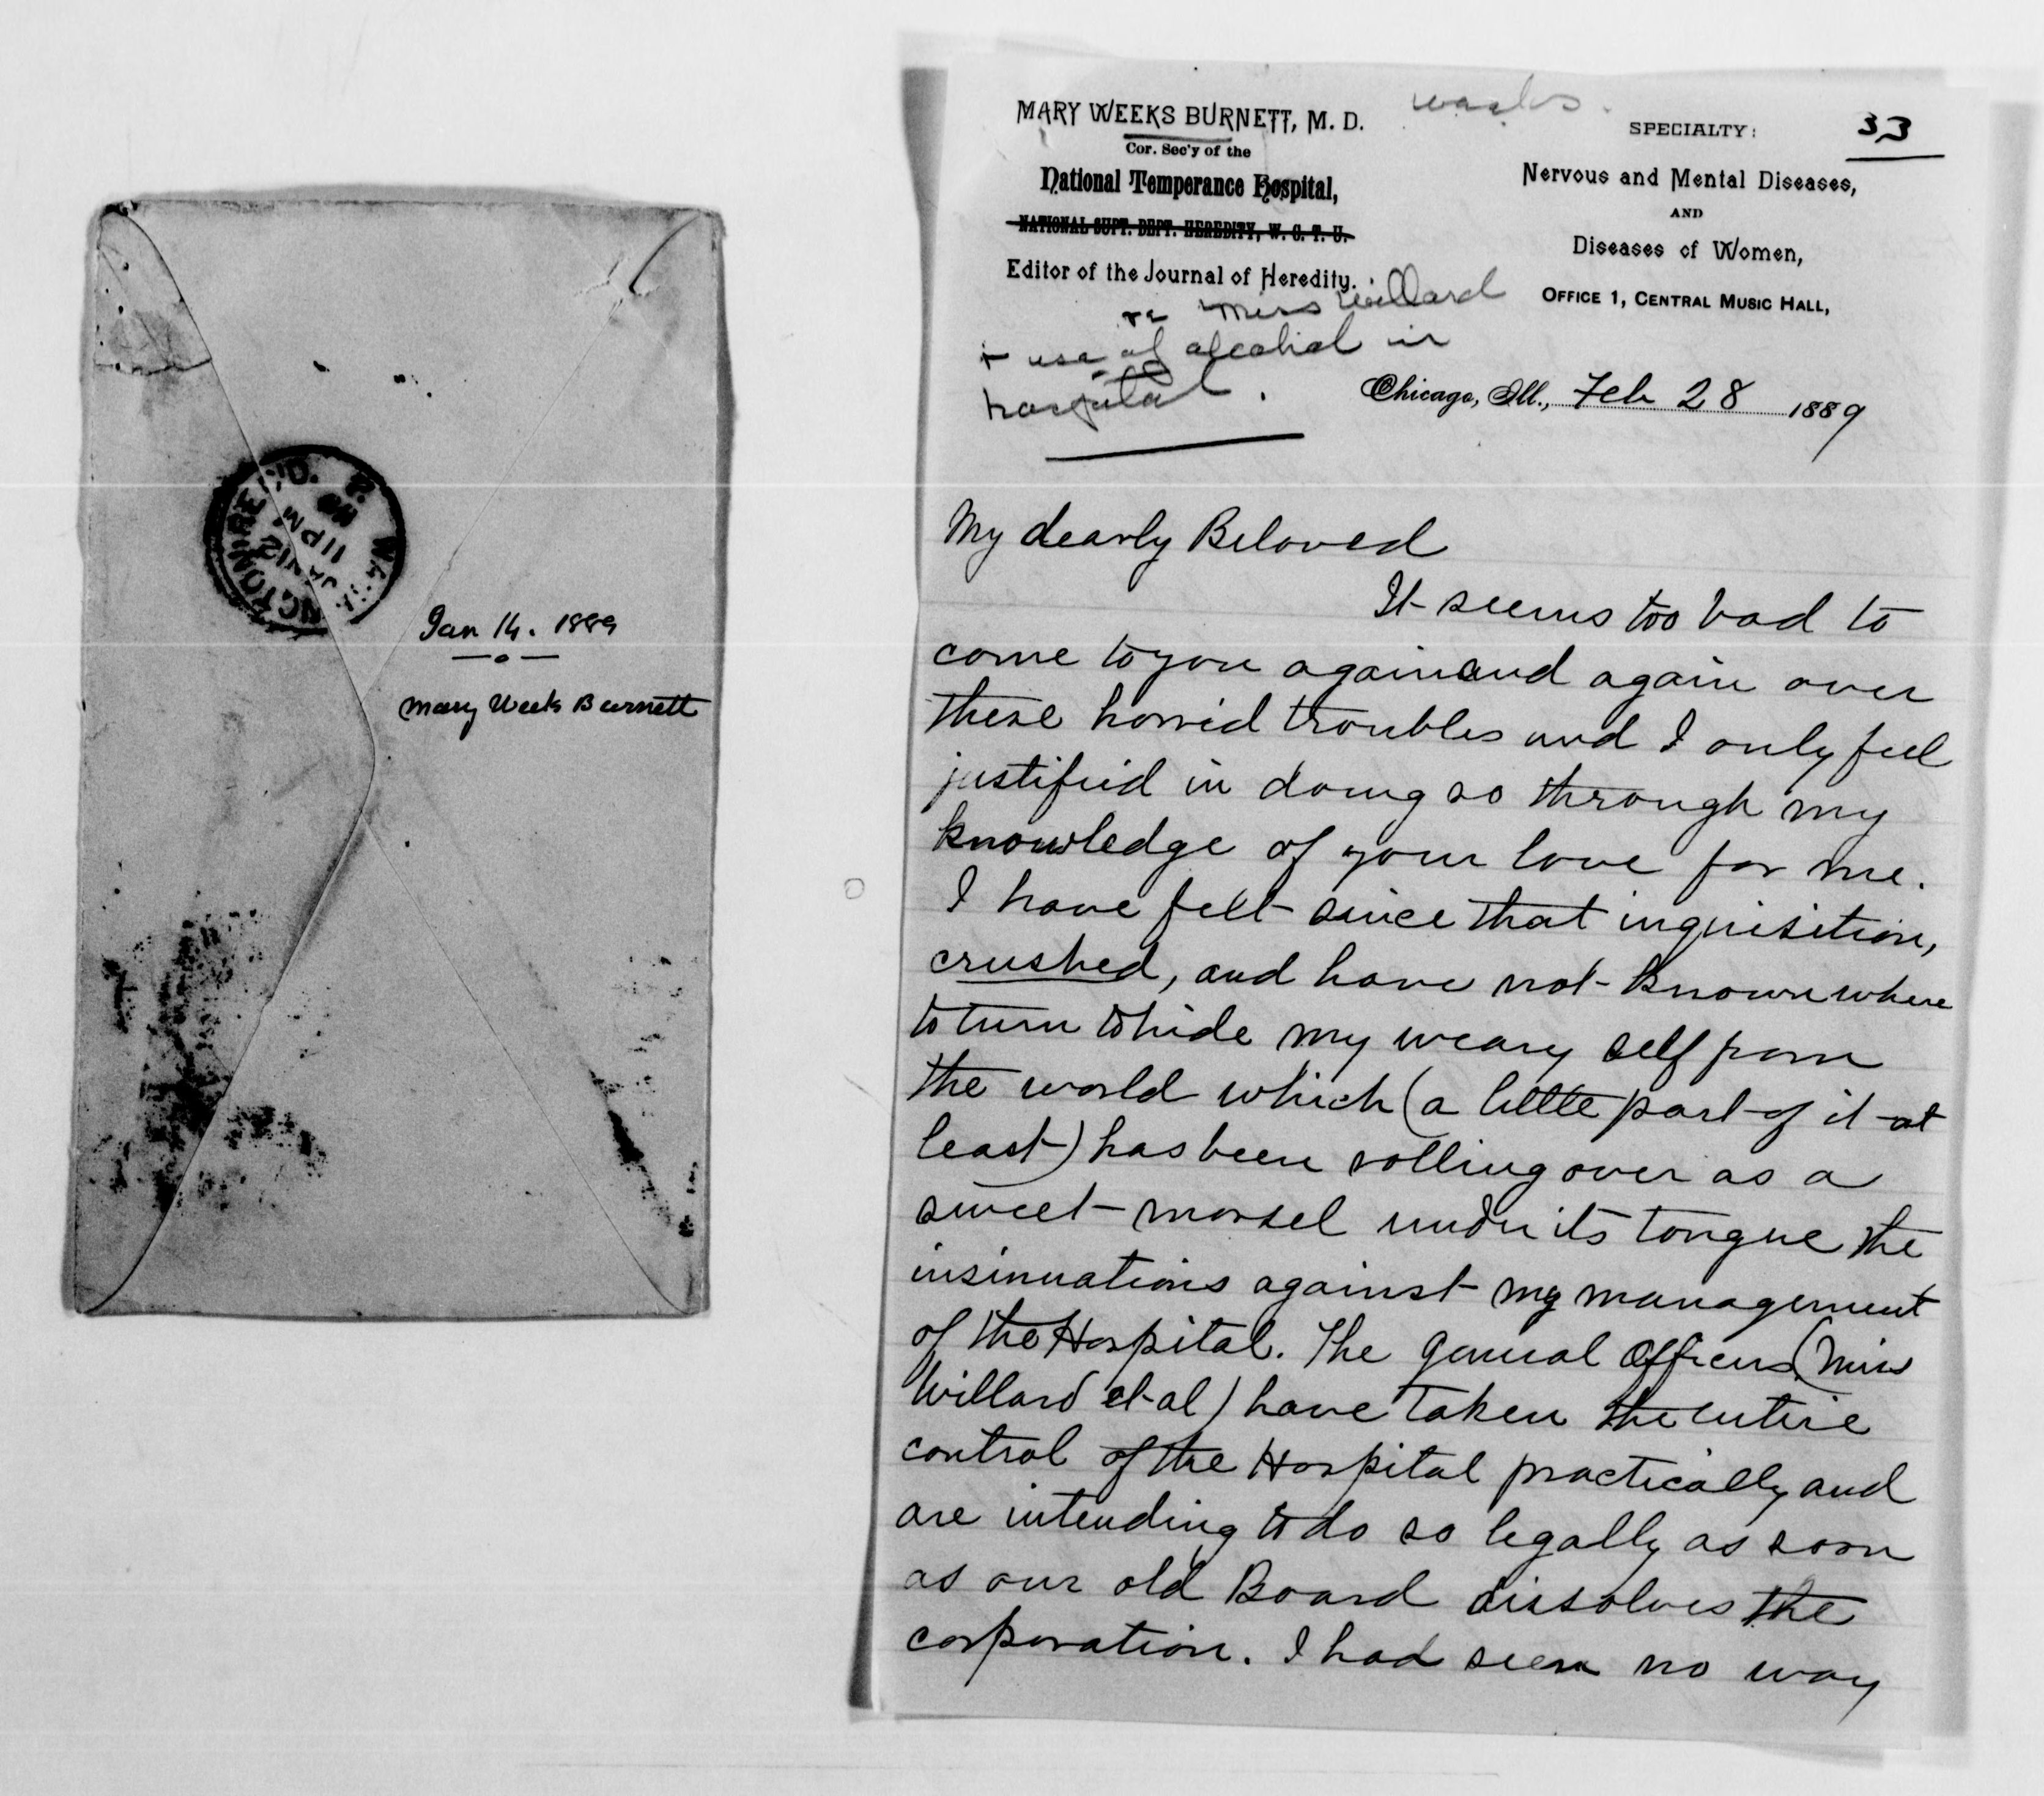 WASHINGTON, REC'D.
JAN 12
11 PM
Jan 14. 1889
Mary Weeks Burnett
weeks.
33
MARY WEEKS BURNETT, M. D.
Cor. Sec'y of the
National Temperance Hospital,
NATIONAL SUPT. DEPT. HEREDITY, W. C. T. U.
Editor of the Journal of Heredity.
SPECIALTY:
Nervous and Mental Diseases,
AND
Diseases of Women,
OFFICE 1, CENTRAL MUSIC HALL,
re Miss Willard
+ use of alcohol in
hospital.
Chicago, Ill., Feb 28 1889
My dearly Beloved
It seems too bad to
come to you again and again over
these horrid troubles and I only feel
justified in doing so through my
knowledge of your love for me.
I have felt since that inquisition,
crushed, and have not known where
to turn to hide my weary self from
the world which (a little part of it at
least) has been rolling over as a
sweet morsel under its tongue the
insinuations against my management
of the Hospital. The general Officers (Miss
Willard et al) have taken the entire
control of the Hospital practically and
are intending to do so legally as soon
as our old Board dissolves the
corporation. I had seen no way